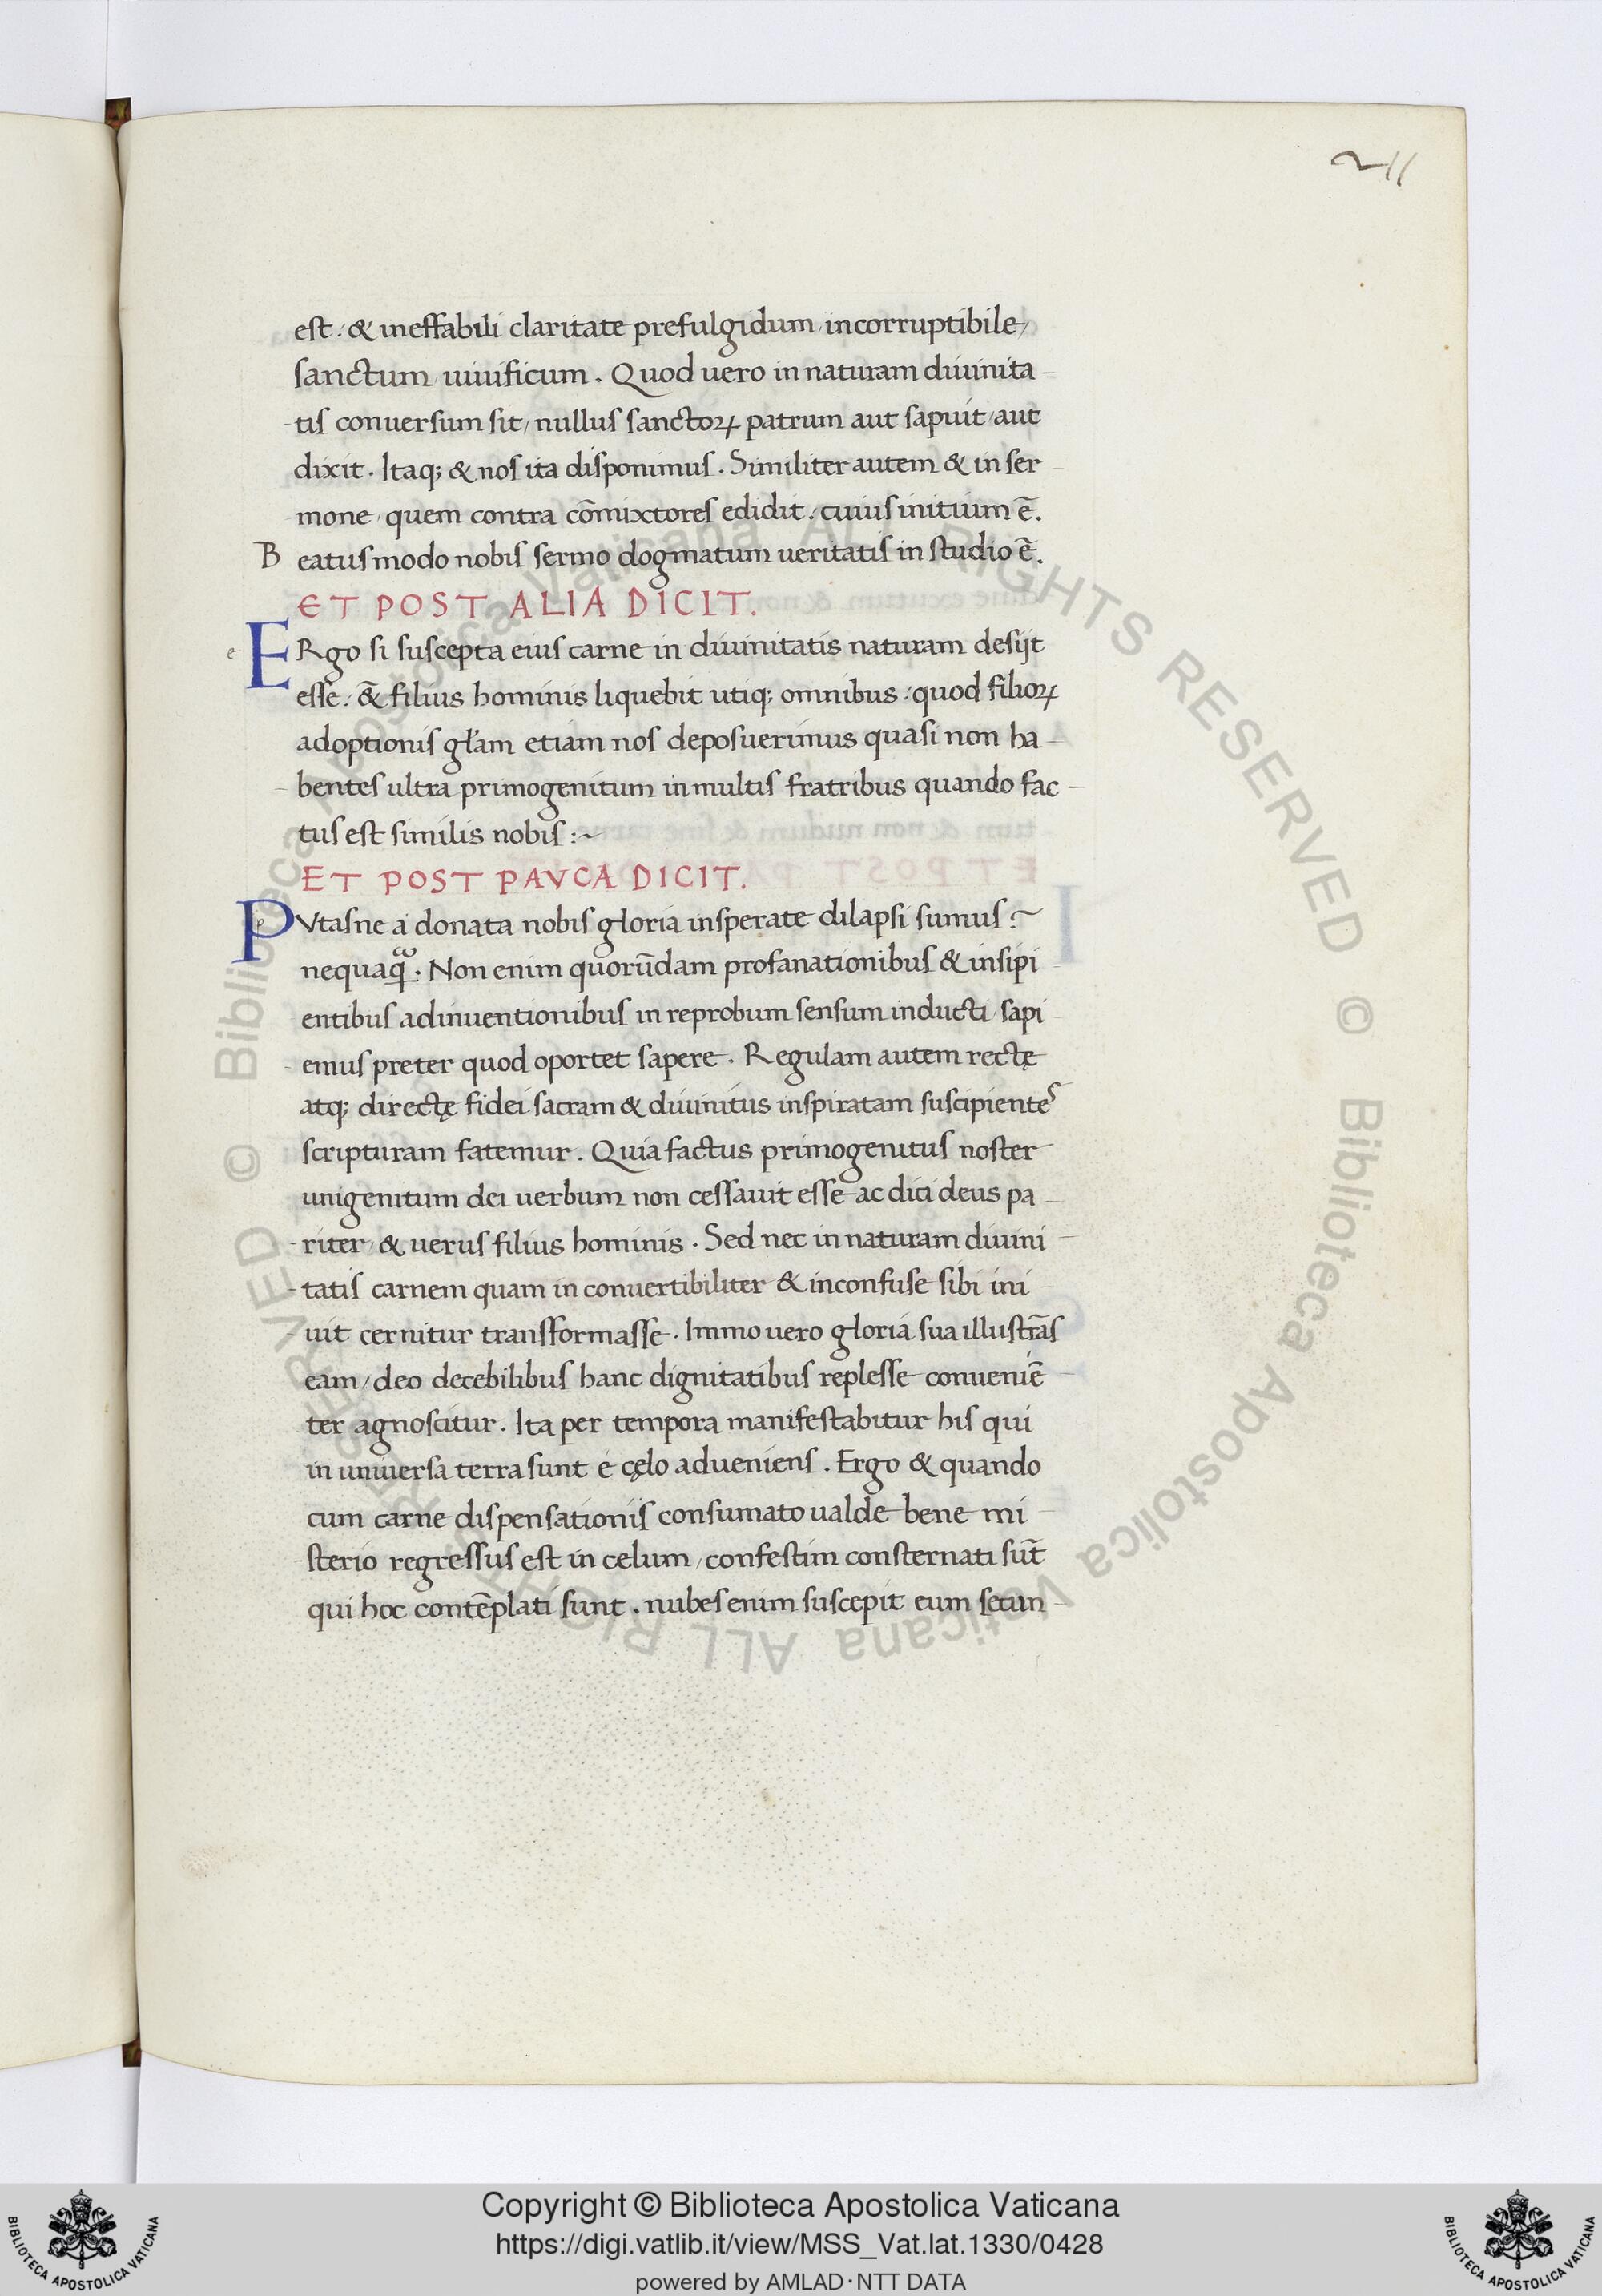 211
est: & ineffabili claritate prefulgidum/incorruptibile/
sanctum/uiuificum. Quod uero in naturam diuinita-
tis conuersum sit/nullus sanctoꝝ patrum aut sapuit/aut
dixit. Itaq; & nos ita disponimus. Similiter autem & in ser
mone/quem contra cōmixtores edidit: cuius initium ē.
Beatus modo nobis sermo dogmatum ueritatis in studio ē.
ET POST ALIA DICIT.
e ERgo si suscepta eius carne in diuinitatis naturam desijt
esse: & filius hominis liquebit utiq; omnibus: quod filioꝝ
adoptionis gl̄am etiam nos deposuerimus quasi non ha-
bentes ultra primogenitum in multis fratribus quando fac-
tus est similis nobis:~
ET POST PAVCA DICIT.
p PVtasne a donata nobis gloria insperate dilapsi sumus?
nequaꝙ. Non enim quorūdam profanationibus & insipi
entibus adinuentionibus in reprobum sensum inducti/sapi
emus preter quod oportet sapere. Regulam autem rectę
atq; directę fidei sacram & diuinitus inspiratam suscipientes
scripturam fatemur. Quia factus primogenitus noster
unigenitum dei uerbum non cessauit esse ac dici deus pa-
riter/& uerus filius hominis. Sed nec in naturam diuini-
tatis carnem quam in conuertibiliter & inconfuse sibi uni
uit cernitur transformasse. Immo uero gloria sua illustrās
eam/deo decebilibus hanc dignitatibus replesse conueniē
ter agnoscitur. Ita per tempora manifestabitur his qui
in uniuersa terra sunt e cęlo adueniens. Ergo & quando
cum carne dispensationis consumato ualde bene mi-
sterio regressus est in celum/confestim consternati sūt
qui hoc contēplati sunt. nubes enim suscepit eum secun-
© Biblioteca Apostolica Vaticana ALL RIGHTS RESERVED © Biblioteca Apostolica Vaticana ALL RIGHTS RESERVED
Copyright © Biblioteca Apostolica Vaticana
https://digi.vatlib.it/view/MSS_Vat.lat.1330/0428
powered by AMLAD·NTT DATA
BIBLIOTECA APOSTOLICA VATICANA
BIBLIOTECA APOSTOLICA VATICANA